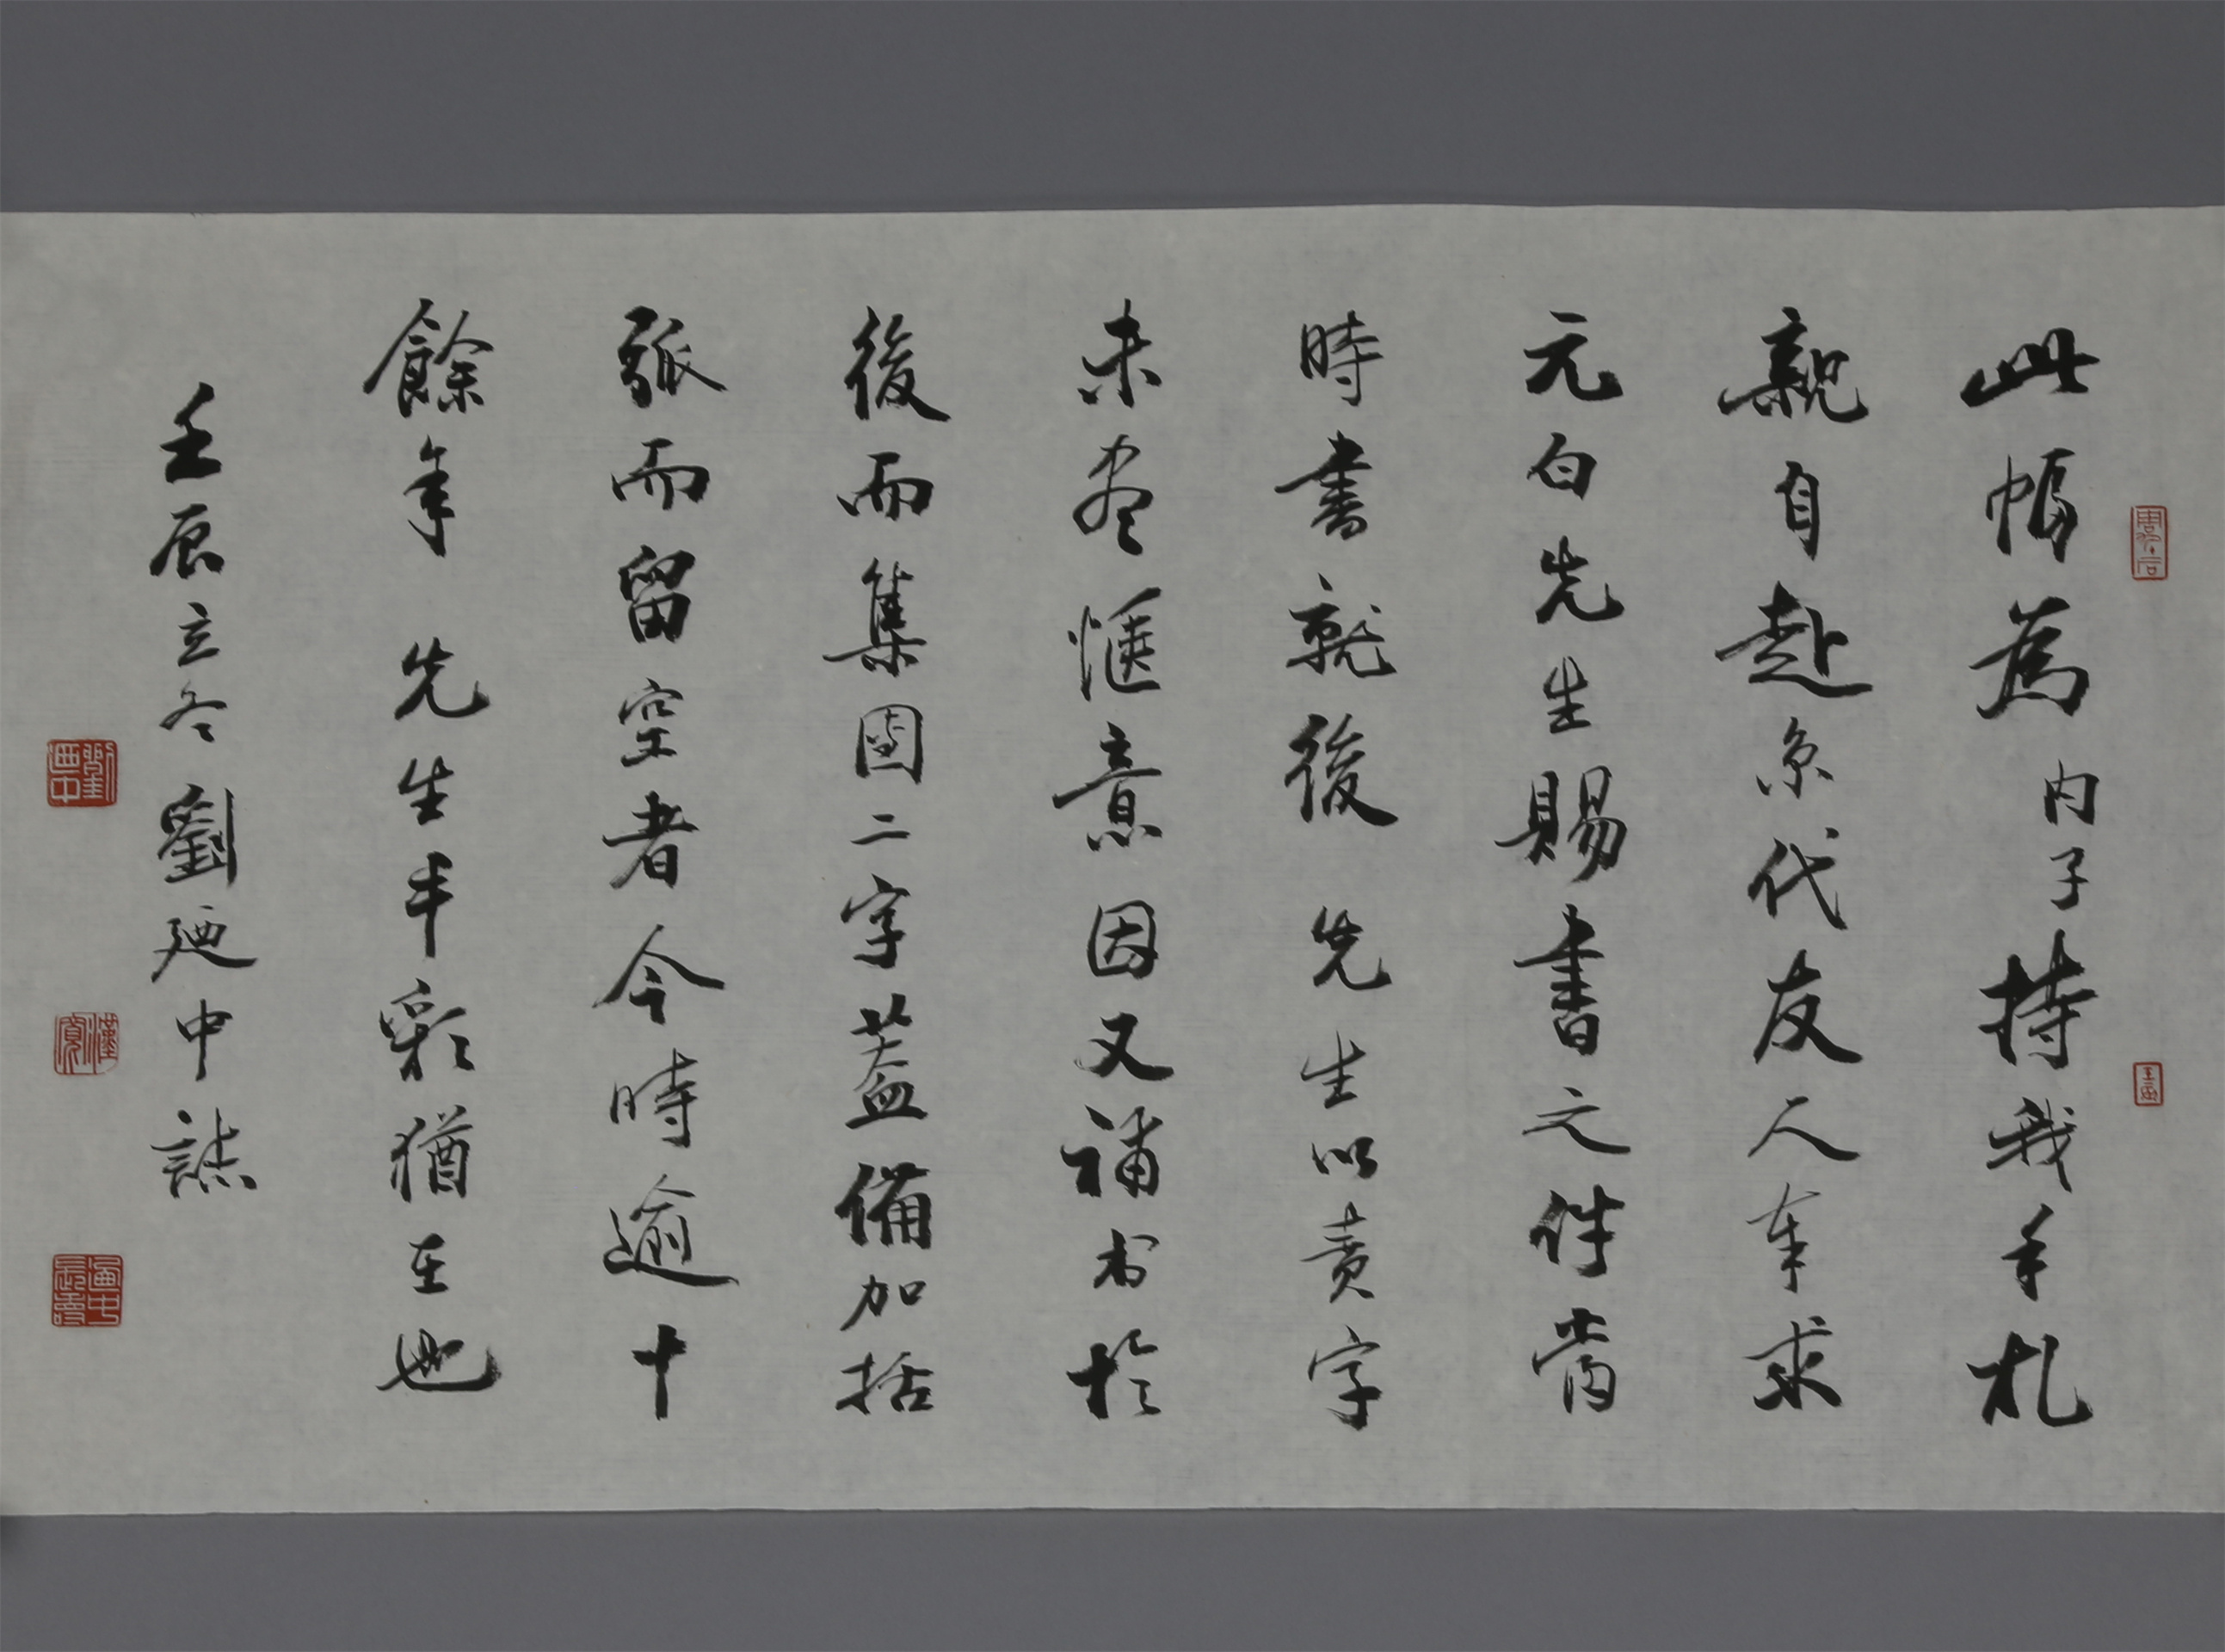 此幅為内子持我手札
親自赴京代友人奉求
元白先生賜書之件當
時書就後 先生以責字
未尽惬意因又補书於
後而集固二字蓋備加括
弧而留空者今時逾十
餘年 先生丰彩猶在也
壬辰立冬劉迺中誌
劉迺中
漢寬